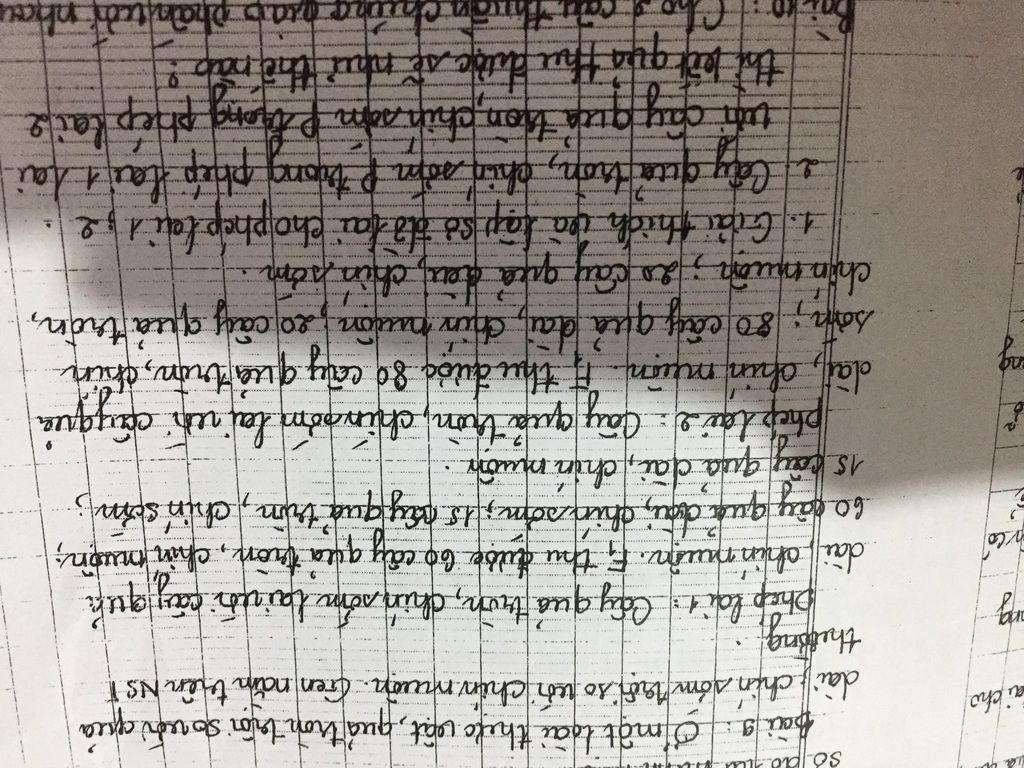 Bài 9: Ở một loài thực vật, quả tròn trội so với quả
dài; chín sớm trội so với chín muộn. Gen nằm trên NST
thường.
Phép lai 1: Cây quả tròn, chín sớm lai với cây quả
dài, chín muộn. F1 thu được 60 cây quả tròn, chín muộn;
60 cây quả dài, chín sớm; 15 cây quả tròn, chín sớm;
15 cây quả dài, chín muộn.
phép lai 2: Cây quả tròn, chín sớm lai với cây quả
dài, chín muộn. F1 thu được 80 cây quả tròn, chín
sớm; 80 cây quả dài, chín muộn; 20 cây quả tròn,
chín muộn; 20 cây quả dài, chín sớm.
1. Giải thích và lập sơ đồ lai cho phép lai 1; 2.
2. Cây quả tròn, chín sớm P trong phép lai 1 lai
với cây quả tròn, chín sớm P trong phép lai 2
thì kết quả thu được sẽ như thế nào?
Bài 10: Cho 2 cây thuần chủng giao phấn với nhau